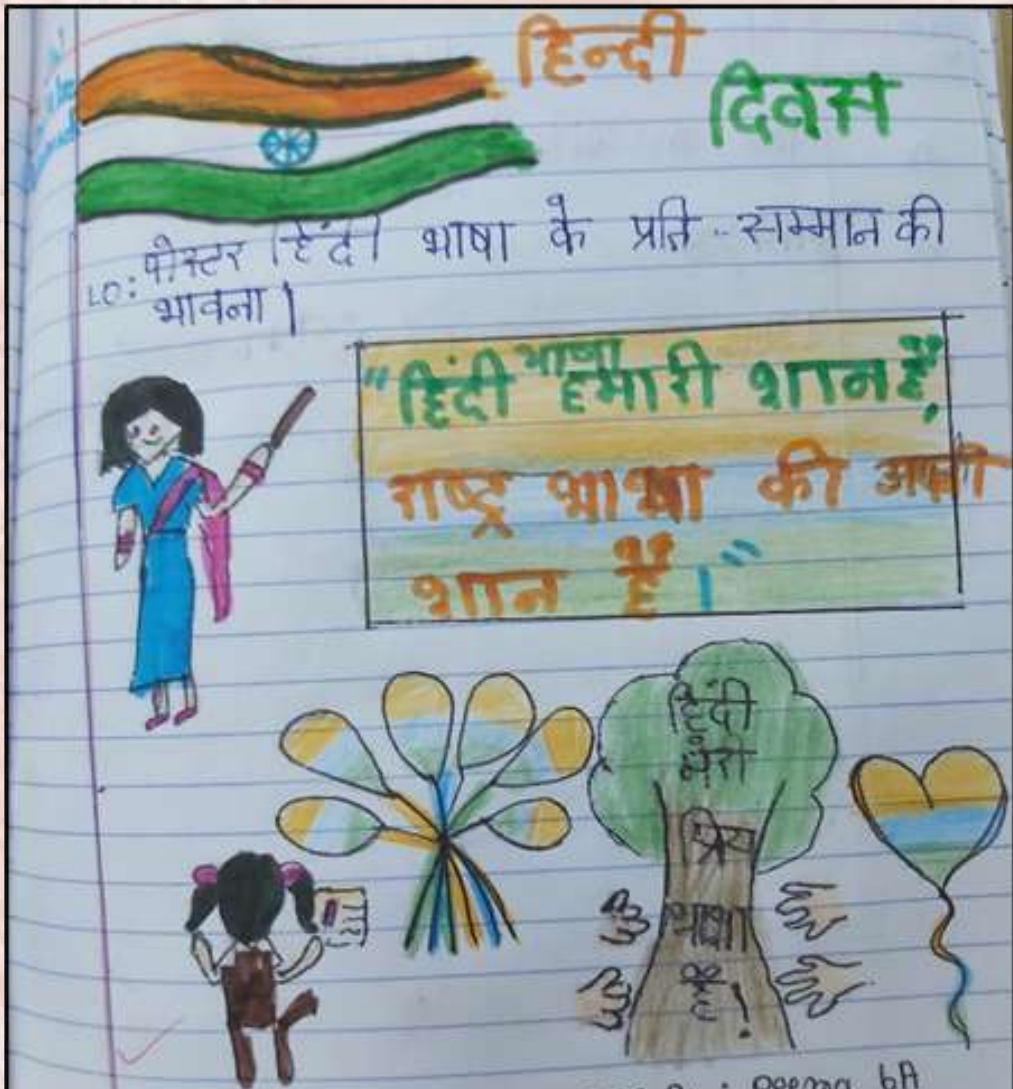 हिन्दी
दिवस
LO: पोस्टर हिंदी भाषा के प्रति सम्मान की
भावना।
"हिंदी भाषा हमारी शान हैं,
राष्ट्र भाषा की
शान हैं।"
हिंदी
मेरी
प्रिय
भाषा
है!
6A